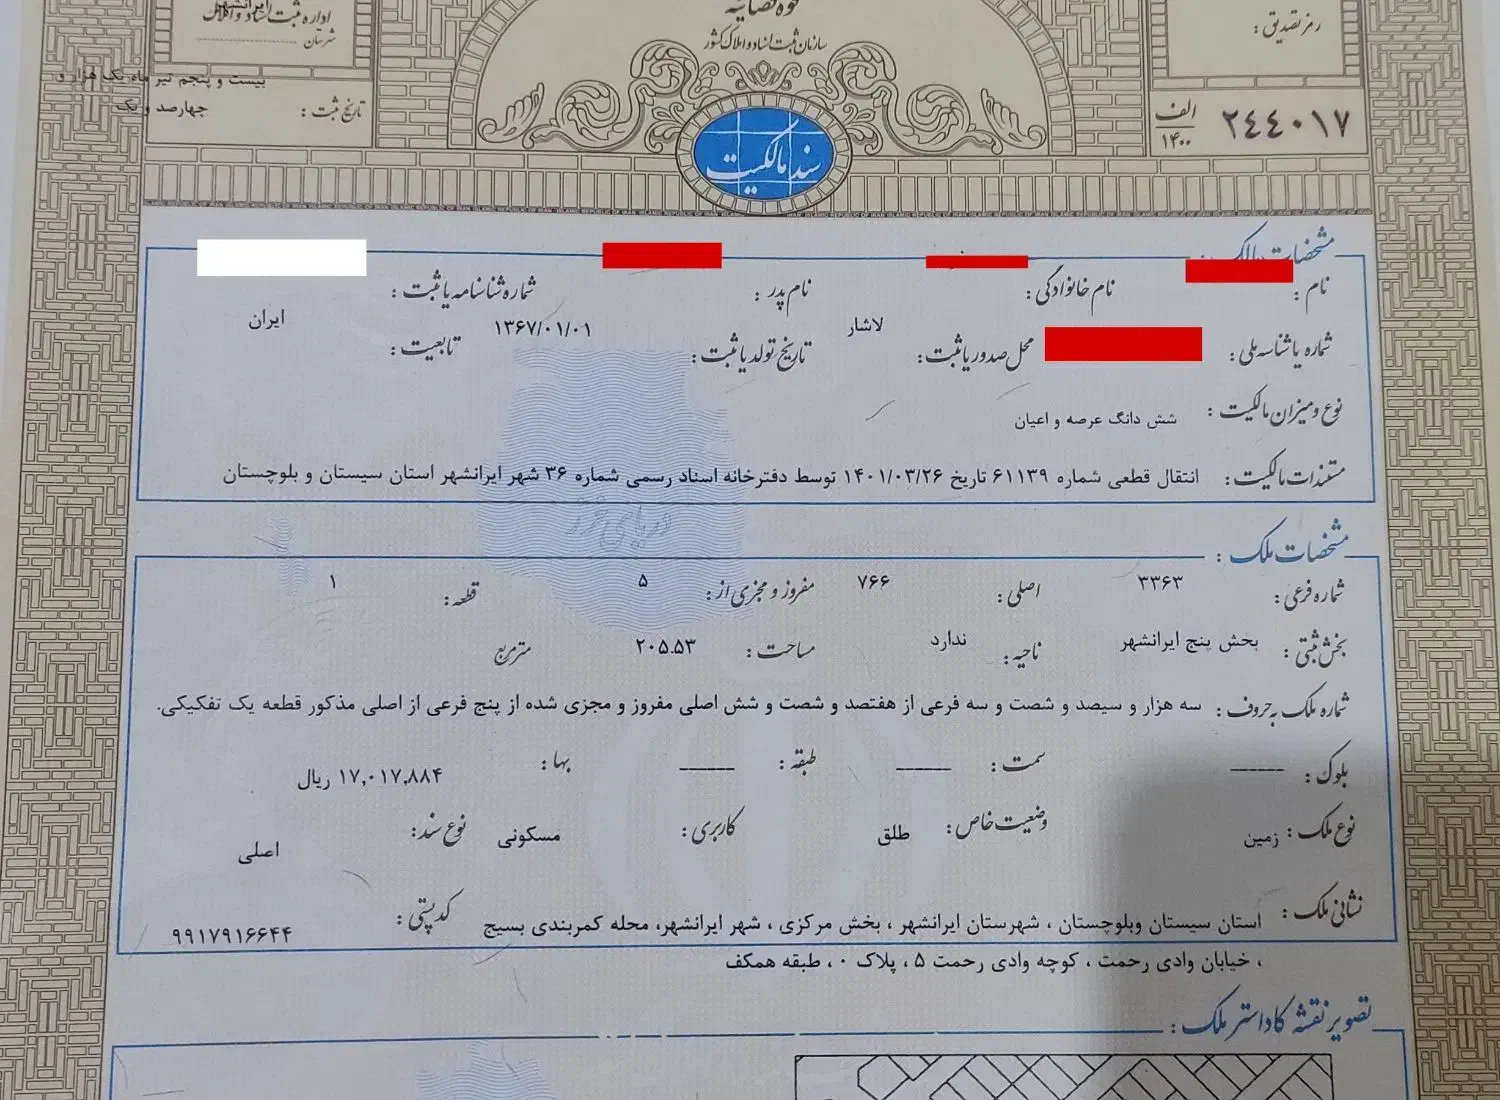 قوه قضاییه
سازمان ثبت اسناد و املاک کشور
رمز تصدیق :
۲۴۴۰۱۷ الف
۱۴۰۰
اداره ثبت اسناد و املاک
ایرانشهر
شهرستان
تاریخ ثبت : بیست و پنجم تیر ماه یک هزار و
چهارصد و یک
سند مالکیت
مشخصات مالک :
نام : نام خانوادگی : نام پدر : شماره شناسنامه یا ثبت :
شماره یا شناسه ملی : محل صدور یا ثبت : لاشار تاریخ تولد یا ثبت : ۱۳۶۷/۰۱/۰۱ تابعیت : ایران
نوع و میزان مالکیت : شش دانگ عرصه و اعیان
مستندات مالکیت : انتقال قطعی شماره ۶۱۱۳۹ تاریخ ۱۴۰۱/۰۳/۲۶ توسط دفترخانه اسناد رسمی شماره ۳۶ شهر ایرانشهر استان سیستان و بلوچستان
دریای خزر
مشخصات ملک :
شماره فرعی : ۳۳۶۳ اصلی : ۷۶۶ مفروز و مجزی از : ۵ قطعه : ۱
بخش ثبتی : بخش پنج ایرانشهر ناحیه : ندارد مساحت : ۲۰۵.۵۳ مترمربع
شماره ملک به حروف : سه هزار و سیصد و شصت و سه فرعی از هفتصد و شصت و شش اصلی مفروز و مجزی شده از پنج فرعی از اصلی مذکور قطعه یک تفکیکی.
بلوک : ــــــ سمت : ــــــ طبقه : ــــــ بها : ۱۷,۰۱۷,۸۸۴ ریال
نوع ملک : زمین وضعیت خاص : طلق کاربری : مسکونی نوع سند : اصلی
نشانی ملک : استان سیستان وبلوچستان ، شهرستان ایرانشهر ، بخش مرکزی ، شهر ایرانشهر، محله کمربندی بسیج کد پستی : ۹۹۱۷۹۱۶۶۴۴
، خیابان وادی رحمت ، کوچه وادی رحمت ۵ ، پلاک ۰ ، طبقه همکف
تصویر نقشه کاداستر ملک :